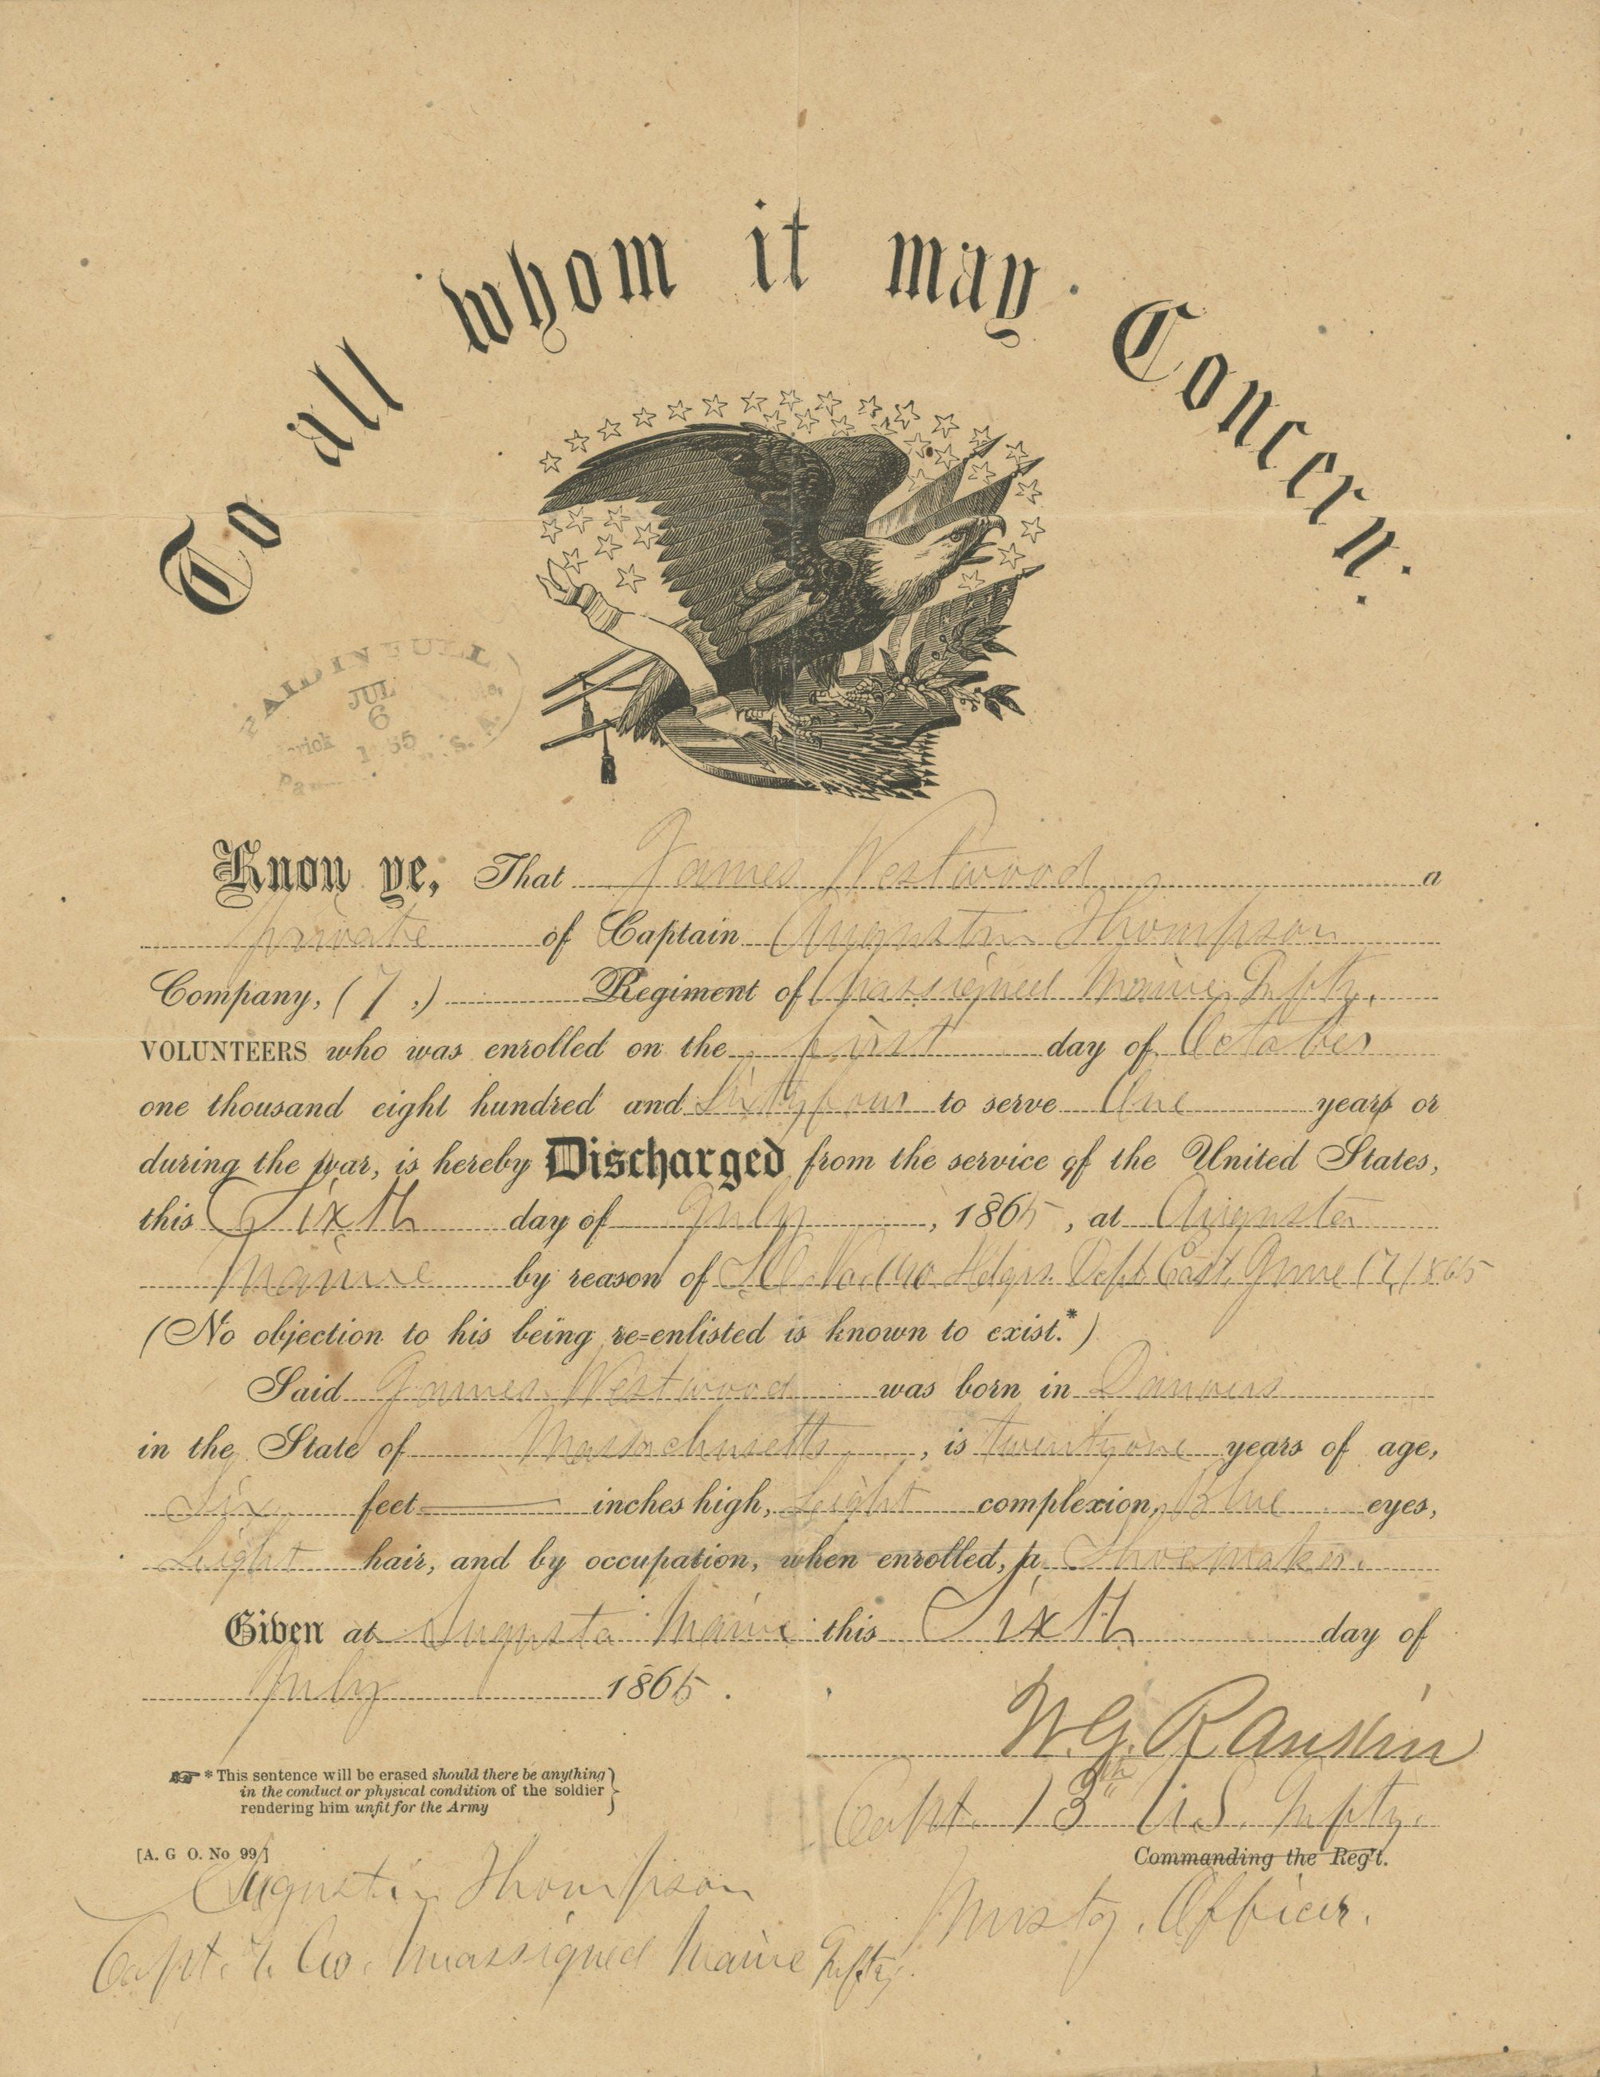 To all whom it may Concern.
PAID IN FULL
JUL
6
Know ye, That James Westwood a
private of Captain Augustin Thompson
Company, (7.) Regiment of Unassigned Maine Infty.
VOLUNTEERS who was enrolled on the first day of October
one thousand eight hundred and Sixty four to serve One years or
during the war, is hereby Discharged from the service of the United States,
this Sixth day of July, 1865, at Augusta
Maine by reason of Hdqrs. Dept. East. June 17, 1865
(No objection to his being re=enlisted is known to exist.*)
Said James Westwood was born in Danvers
in the State of Massachusetts, is twenty one years of age,
Six feet inches high, Light complexion, Blue eyes,
Light hair, and by occupation, when enrolled, a Shoemaker.
Given at Augusta Maine this Sixth day of
July 1865.
W. G. Rankin
* This sentence will be erased should there be anything
in the conduct or physical condition of the soldier
rendering him unfit for the Army
Capt. 13th U.S. Infty.
[A. G O. No 99]
Commanding the Reg't.
Augustin Thompson
Musty. Officer.
Capt. 7. Co. Unassigned Maine Infty.